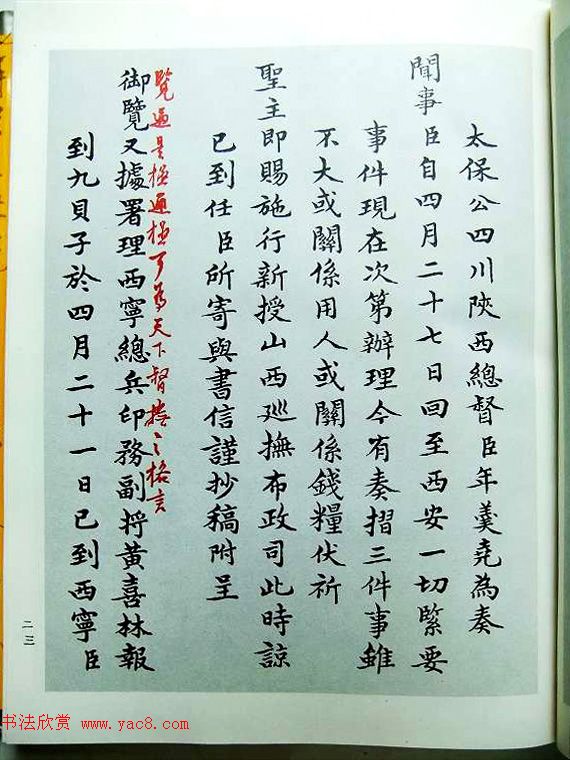 太保公四川陝西總督臣年羹堯為奏
聞事臣自四月二十七日回至西安一切緊要
事件現在次第辦理今有奏摺三件事雖
不大或關係用人或關係錢糧伏祈
聖主即賜施行新授山西巡撫布政司此時諒
已到任臣所寄與書信謹抄稿附呈
覽過是極通極可為天下督撫之格言
御覽又據署理西寧總兵印務副將黃喜林報
到九貝子於四月二十一日已到西寧臣
二三
书法欣赏 www.yac8.com